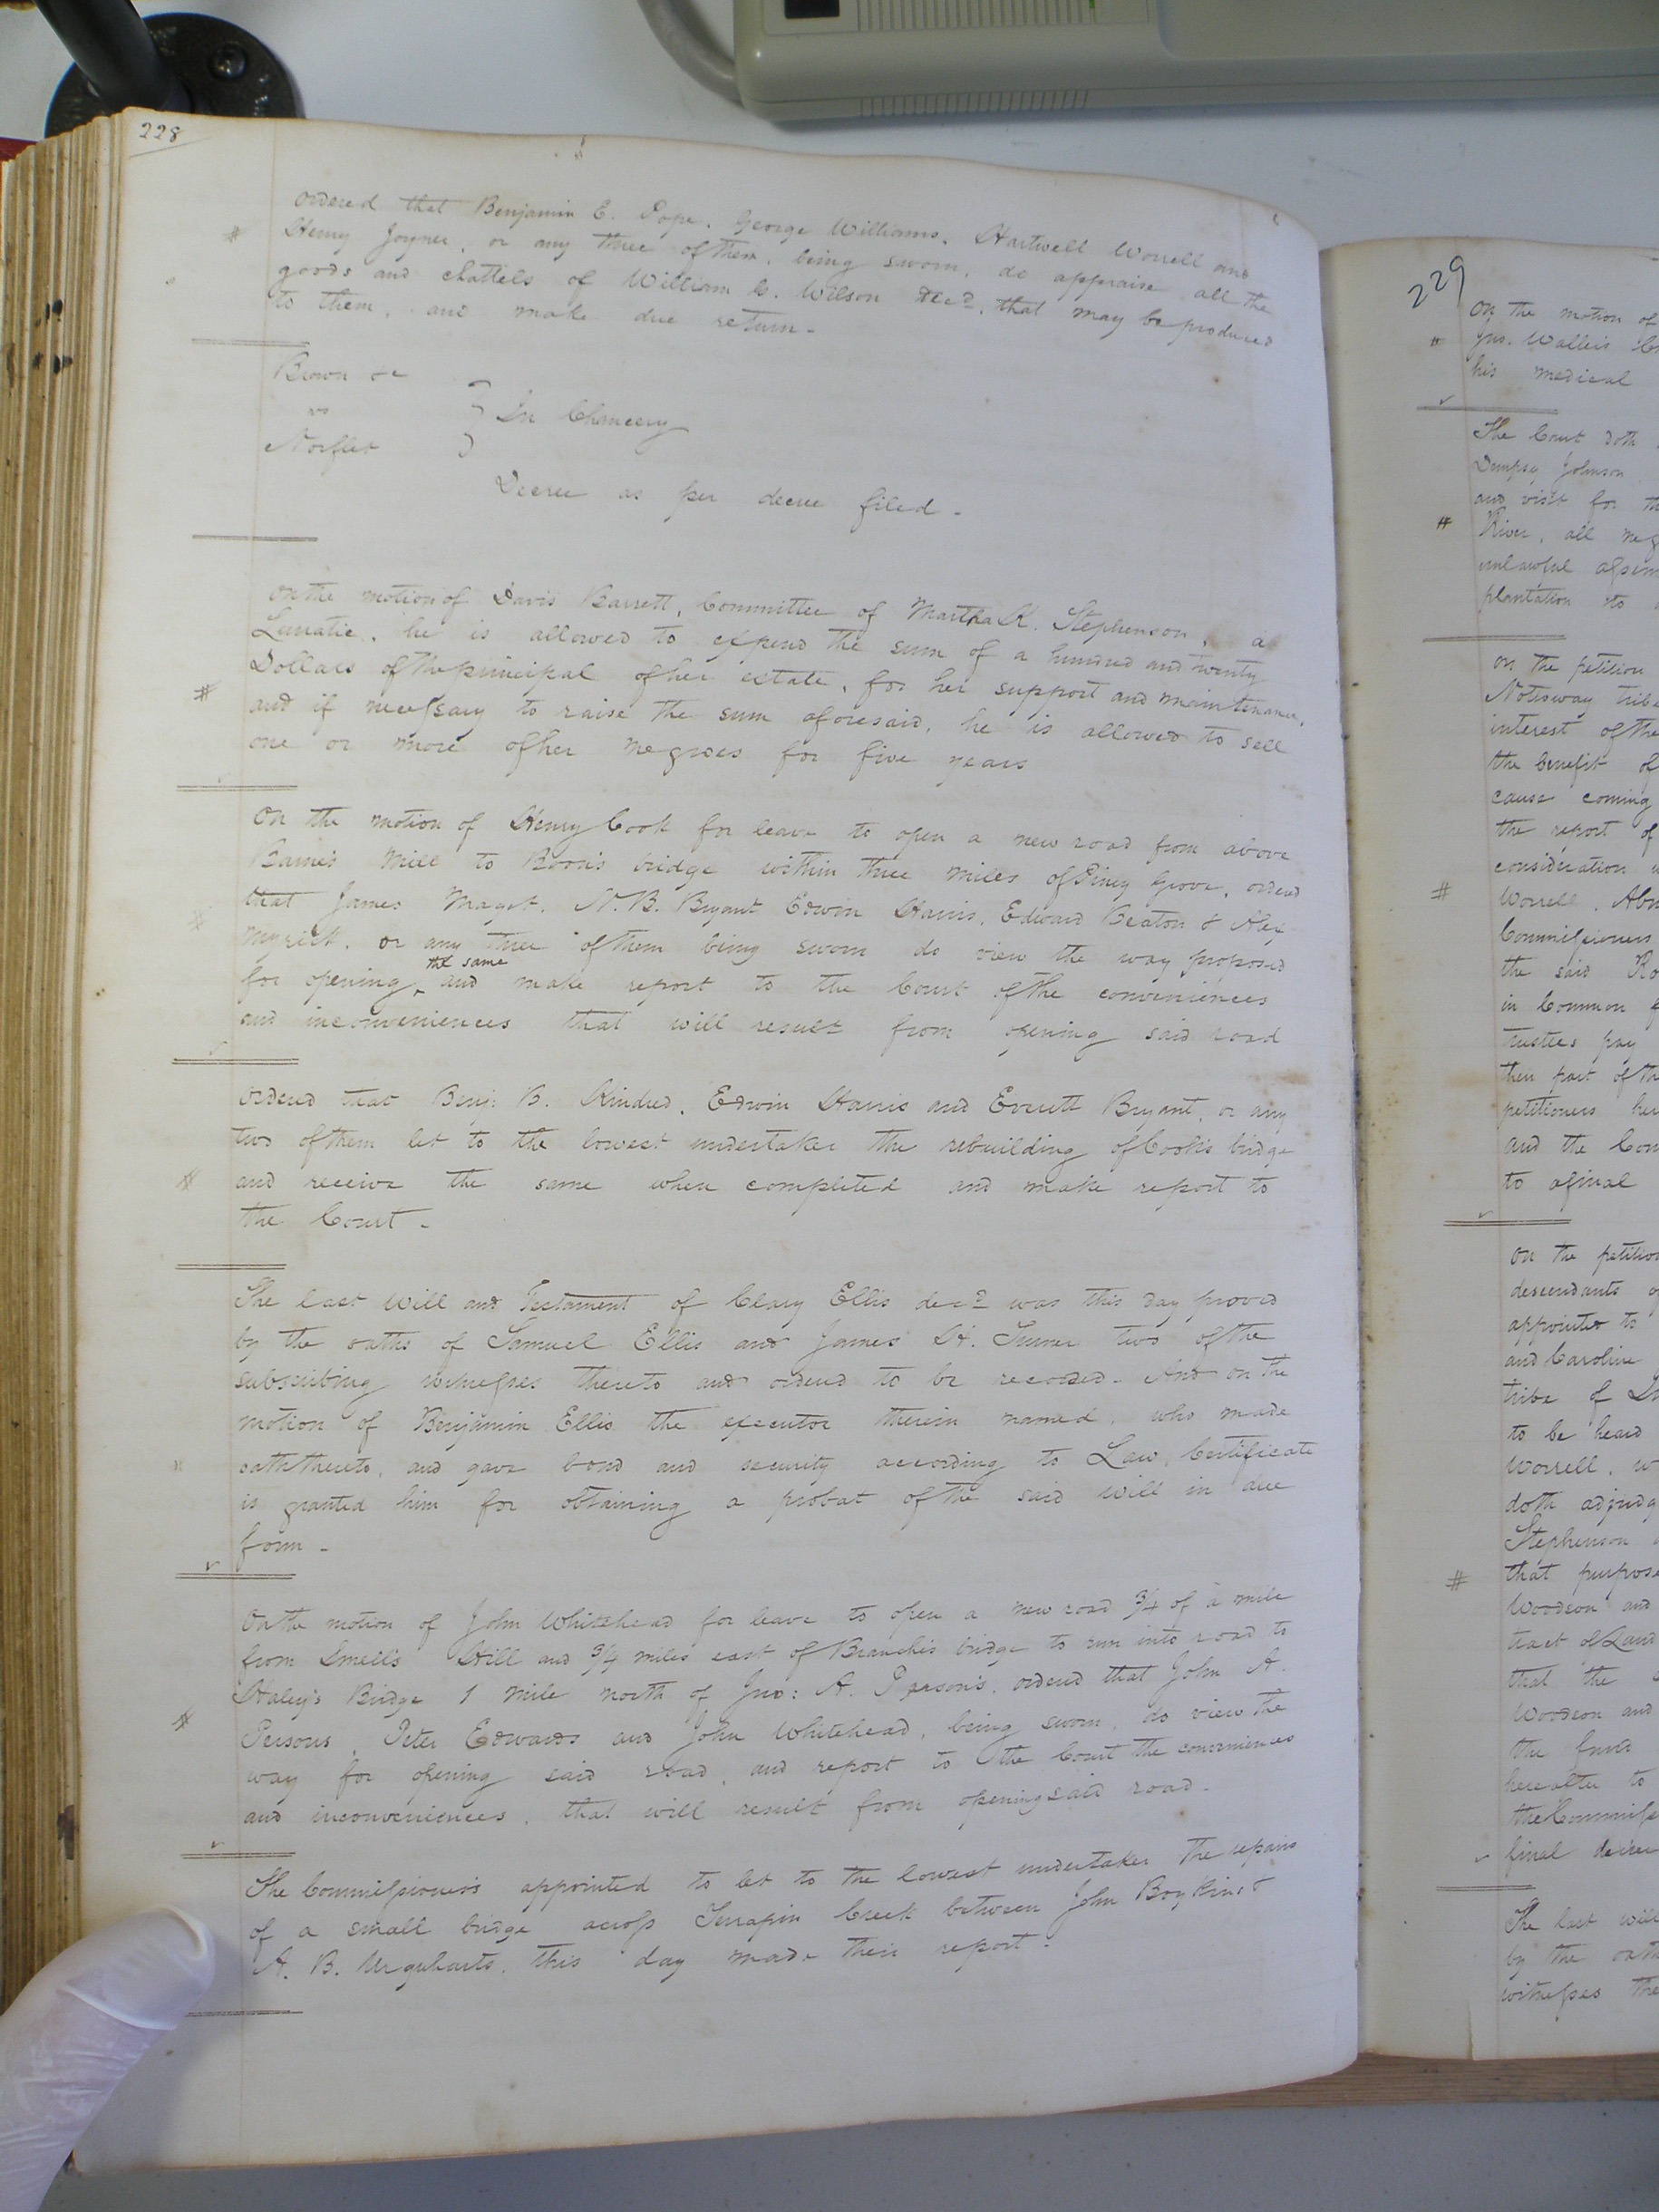 228
ordered that Benjamin E. Pope, George Williams, Hartwell Worrell and
Henry Joyner, or any three of them, being sworn, do appraise all the
goods and chattels of William C. Wilson decd, that may be produced
to them, and make due return -
Brown &c
vs
In Chancery
Norfleet
Decree as per decree filed -
On the motion of Davis Barrett, Committee of Martha K. Stephenson, a
Lunatic, he is allowed to expend the sum of a hundred and twenty
Dollars of the principal of her estate, for her support and maintenance,
and if necessary to raise the sum aforesaid, he is allowed to sell
one or more of her negroes for five years
On the motion of Henry Cook for leave to open a new road from above
Baine's Mill to Boon's bridge within three miles of Piney Grove, ordered
that James Maget, N. B. Bryant Edwin Harris, Edward Beaton & Alex
Myrick, or any three of them being sworn do view the way proposed
the same
for opening and make report to the Court of the conveniences
and inconveniences that will result from opening said road
Ordered that Benj: B. Kindred, Edwin Harris and Everett Bryant, or any
two of them let to the lowest undertaker the rebuilding of Cook's bridge
and receive the same when completed and make report to
the Court -
The last Will and Testament of Clary Ellis decd was this day proved
by the oaths of Samuel Ellis and James H. two of the
subscribing witnesses thereto and ordered to be recorded - And on the
motion of Benjamin Ellis the executor therein named, who made
oath thereto, and gave bond and security according to Law, Certificate
is granted him for obtaining a probat of the said will in due
form -
On the motion of John Whitehead for leave to open a new road 3/4 of a mile
from Hill and 3/4 miles east of Branch's bridge to run into road to
Haley's Bridge 1 mile north of Jno: A. Person's, ordered that John A.
Persons, Peter Edwards and John Whitehead, being sworn, do view the
way for opening said road, and report to the Court the conveniences
and inconveniences, that will result from opening said road -
The Commissioners appointed to let to the lowest undertaker the repairs
of a small bridge across Terrapin Creek between John Boykins &
A. B. Urquharts, this day made their report -
229
On the motion of
Jno. Wallis
his medical
The Court doth
Dempsey Johnson
and visit for
River, all neg
unlawful assem
plantation to
On the petition
Notoway tribe
interest of the
the benefit of
cause coming
the report of
consideration
Worrell,
Commissioners
the said Ro
in Common
trustees pay
their part of th
petitioners her
and the Com
to a final
On the petition
descendants of
appointed to
and Caroline
tribe of In
to be heard
Worrell, w
doth adjudg
Stephenson
that purpose
Woodson and
tract of Land
that the
Woodson and
the funds
hereafter to
the Commiss
final decree
The last will
by the oath
witnesses the